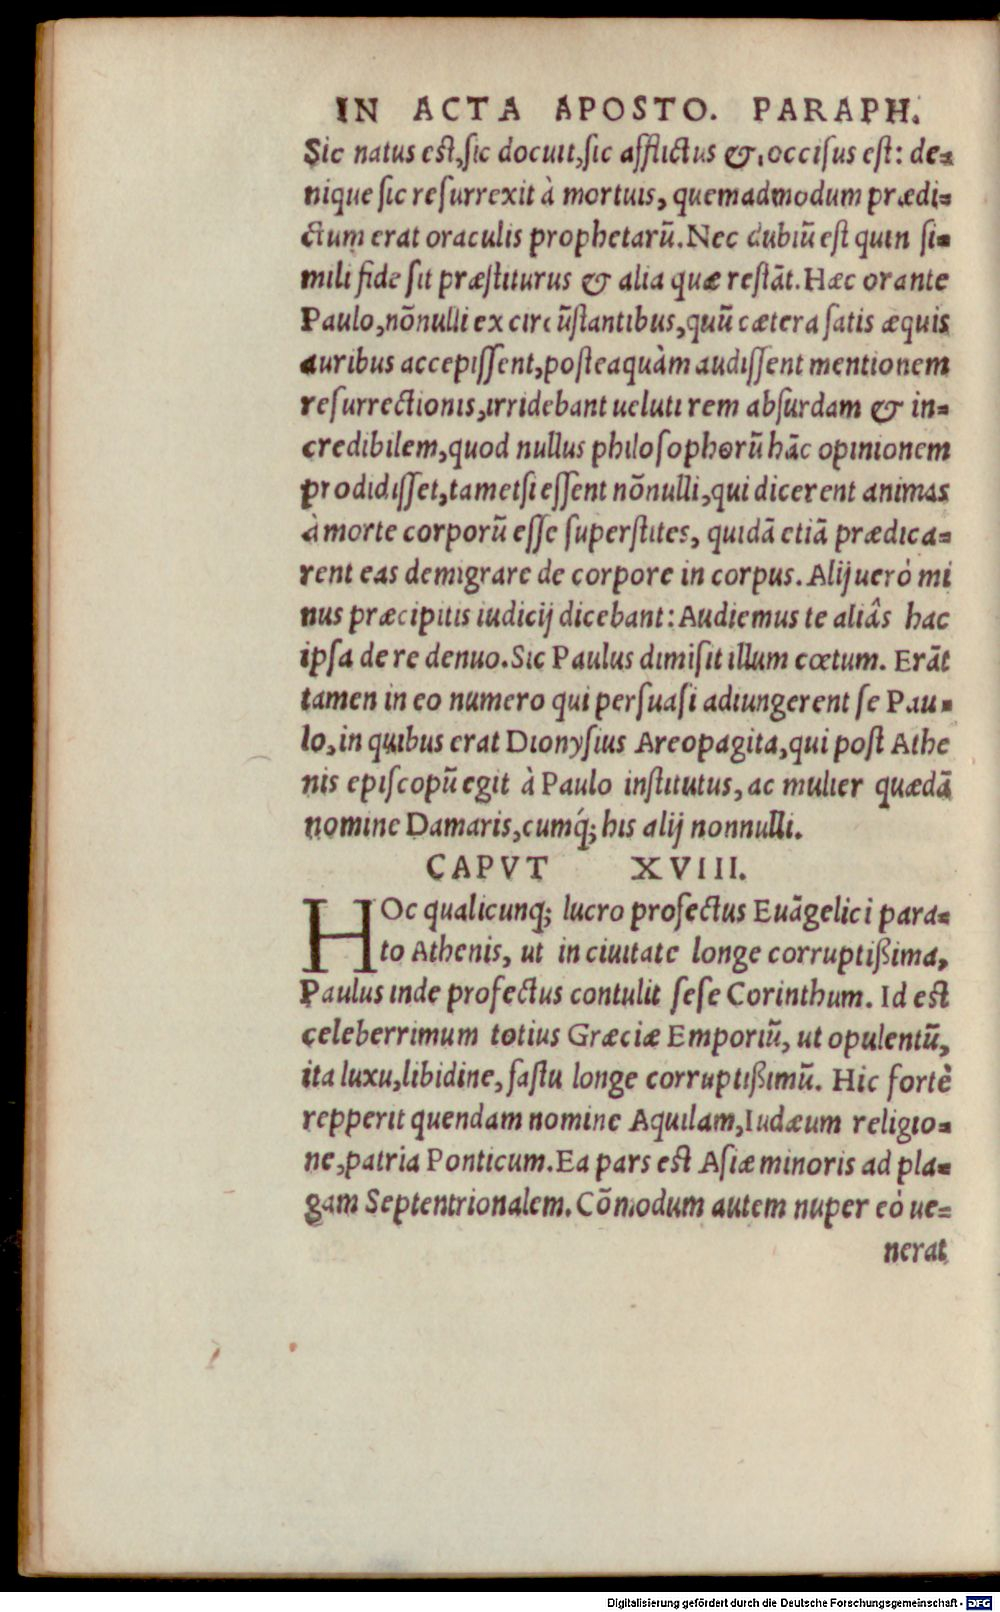 IN ACTA APOSTO. PARAPH.
Sic natus est, sic docuit, sic afflictus &, occisus est: de-
nique sic resurrexit à mortuis, quemadmodum prædi-
ctum erat oraculis prophetarũ. Nec dubiũ est quin si-
mili fide sit præstiturus & alia quæ restãt. Hæc orante
Paulo, nõnulli ex circũstantibus, quũ cætera satis æquis
auribus accepissent, posteaquàm audissent mentionem
resurrectionis, irridebant ueluti rem absurdam & in-
credibilem, quod nullus philosophorũ hãc opinionem
prodidisset, tametsi essent nõnulli, qui dicerent animas
à morte corporũ esse superstites, quidã etiã prædica-
rent eas demigrare de corpore in corpus. Alij uerò mi
nus præcipitis iudicij dicebant: Audiemus te aliâs hac
ipsa de re denuo. Sic Paulus dimisit illum cœtum. Erãt
tamen in eo numero qui persuasi adiungerent se Pau-
lo, in quibus erat Dionysius Areopagita, qui post Athe
nis episcopũ egit à Paulo institutus, ac mulier quædã
nomine Damaris, cumq́; his alij nonnulli.
CAPVT XVIII.
HOc qualicunq; lucro profectus Euãgelici para-
to Athenis, ut in ciuitate longe corruptißima,
Paulus inde profectus contulit sese Corinthum. Id est
celeberrimum totius Græciæ Emporiũ, ut opulentũ,
ita luxu, libidine, fastu longe corruptißimũ. Hic fortè
repperit quendam nomine Aquilam, Iudæum religio-
ne, patria Ponticum. Ea pars est Asiæ minoris ad pla-
gam Septentrionalem. Cõmodum autem nuper eò ue-
nerat
Digitalisierung gefördert durch die Deutsche Forschungsgemeinschaft - DFG